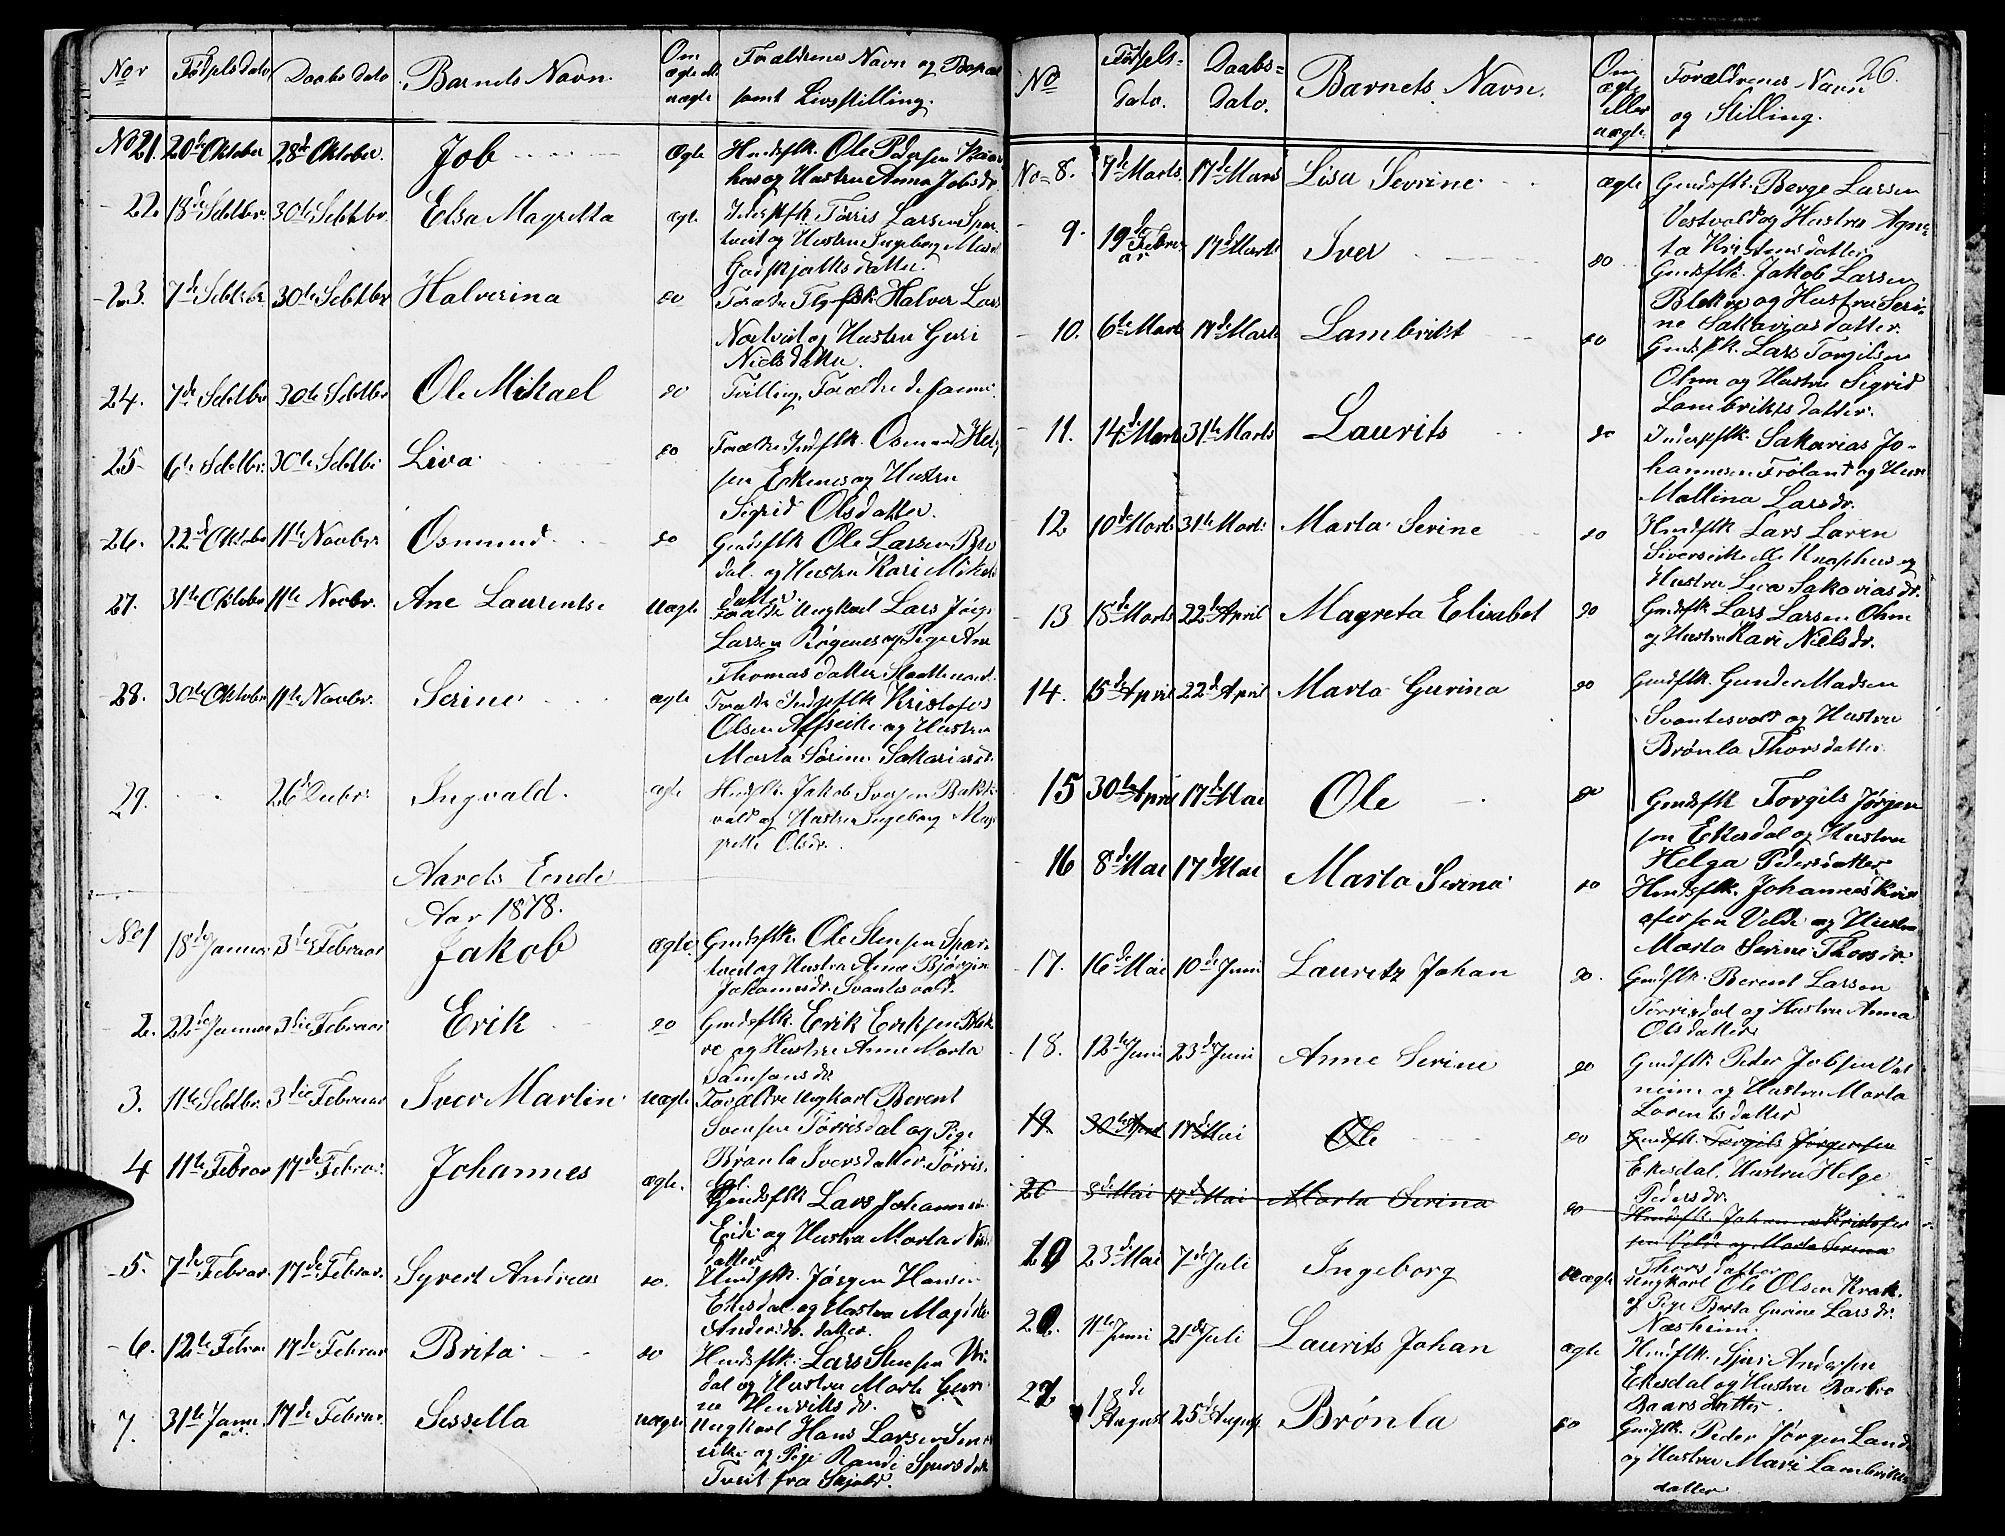 Nor Fødselsdato Daabs dato Barnets Navn. Om ægte ell uægte Forældrenes Navn og Bopæl samt Livsstilling.
No 21. 20de Oktober 28de Oktober. Job Ægte Husfflk. Ole Pedersen
og Hustru Anna Jobsdr.
22. 18de Sebtbr. 30te Sebtbr. Elsa Magretta ægte Tørris Larsen
og Hustru Ingeborg
Godskjalksdatter.
23. 7de Sebtbr 30te Sebtbr Halverina do Halvor Lars
og Hustru Guri
Nielsdatter.
24. 7de Sebtbr 30te Sebtbr Ole Mikael do Tvilling, Forældre de samme
25 6te Sebtbr. 30te Sebtbr Liva do Forældre Indsflk. Osmund Hel
sen Ekenes og Hustru
Sigrid Olsdatter.
26. 22de Oktober 11te Novbr. Osmund do Gmdsflk Ole Larsen Bre
dal. og Hustru Kari Mikals
datter.
27. 31te Oktober 11te Novbr. Ane Laurentse Uægte Forældre Ungkarl Lars Jørg
Larsen Røgenes og Pige Ane
Thomasdatter
28. 30te Oktober 11te Novbr. Serine ægte Forældre Indsflk Kristofer
Olsen Alfseike og Hustru
Marta Sørine Sakariasd.
29. 26de Decbr. Ingvald. ægte Husflk. Jakob Iversen Bakke
vold og Hustru Ingeborg Mag
grette Olsdr.
Aarets Ende
Aar 1878.
No 1 18de Januar 3die Februar Jakob Ægte. Gmdsflk. Ole Stensen Spar
tveit og Hustru Anne Bjørgin
Johannesdr. Svantesvold.
2. 22de Januar 3die Februar Erik do Gmdsflk. Erik Eriksen Blek
re og Hustru Anne Marta
Samsonsdr.
3. 11te Sebtbr. 3die Februar Iver Martin Uægte Forældre Ungkarl Berent
Svensen Tørrisdal og Pige
Brønla Iversdatter Tørris.
4 11te Februar 17de Februar. Johannes ægte. Gmdsflk Lars Johannesen
Eide og Hustru Marta
datter
5. 7de Februar. 17de Februar. Syvert Andreas do. Husflk. Jørgen Hansen
Ekesdal. og Hustru
datter.
6. 12te Februar 17de Februar Brita do Husflk. Lars Stensen
dal og Hustru Marta Guri
na Henriksdr.
7. 31te Januar 17de Februar. Sessella uægte Ungkarl Hans Larsen
og Pige Randi Sjursdatter
Tveit fra Skjold.
26.
No Fødsels= dato. Daabs= dato. Barnets Navn. Om ægte eller uægte Forældrenes Navn og Stilling.
No= 8. 7de Marts. 17de Marts Lisa Sevrine ægte Gmdsflk. Børge Larsen
Vestvold og Hustru Agne=
ta Kristensdatter
9. 19de Febru ar 17de Marts Iver do Gmdsflk. Jakob Larsen
Blekre og Hustru Seri
ne Sakariasdatter.
10. 6te Marts 17de Marts Lambrikt do Gmdsflk. Lars Torgilsen
Ohm og Hustru Sigrid
Lambriktsdatter.
11. 14de Marts 31te Marts Laurits do Indersflk. Sakarias Jo=
hannesen Frøland og Hustr
Mallina Larsdr.
12 10de Marts 31te Marts Marta Serine do Husflk Lars Larsen
Knaphus og
Hustru Liva Sakariasdr.
13 18de Marts 22de April Magreta Elisabet do Gmdsflk Lars Larsen Ohm
og Hustru Kari Nielsdr.
14. 15de April 22de April Marta Gurina do Gmdsflk. Gunder Madsen
Svantesvold og Hustru
Brønla Thorsdatter.
15 30te April 17de Mai Ole do Gmdsflk Torgils Jørgen
sen Ekesdal og Hustru
Helga Pedersdatter
16 8de Mai 17de Mai Marta Serina do Husflk. Johannes Krist
ofersen Velde og Hustru
Marta Serine Thorsdr.
17. 16de Mai 10de Juni Lauritz Johan do. Gmdsflk. Berent Larsen
Tørrisdal og Hustru Anna
Olsdatter
18. 12te Juni 23de Juni Anne Serine do Gmdsflk Peder Jobsen Vat
neim og Hustru Marta
Lorentsdatter
19. 30te April 17de Mai Ole do Gmdsflk. Torgils Jørgensen
Ekesdal. Hustru Helge
Pedersdr.
20 8de Mai 17de Mai Marta Serina do Husflk Johannes Kristofer
sen Velde og Marta Serina
Thorsdatter
19 23de Mai 7de Juli Ingeborg Uægte Ungkarl Ole Olsen Krak.
og Pige Berta Gurine Larsdr.
Næsheim.
20. 11te Juni 21de Juli Laurits Johan ægte Husflk. Sjur Andersen
Ekesdal og Hustru Barbro
Baarsdatter.
21 18de August 25de August Brønla do Gmdsflk. Peder Jørgensen Lande
og Hustru Mari Lambrikts
datter.